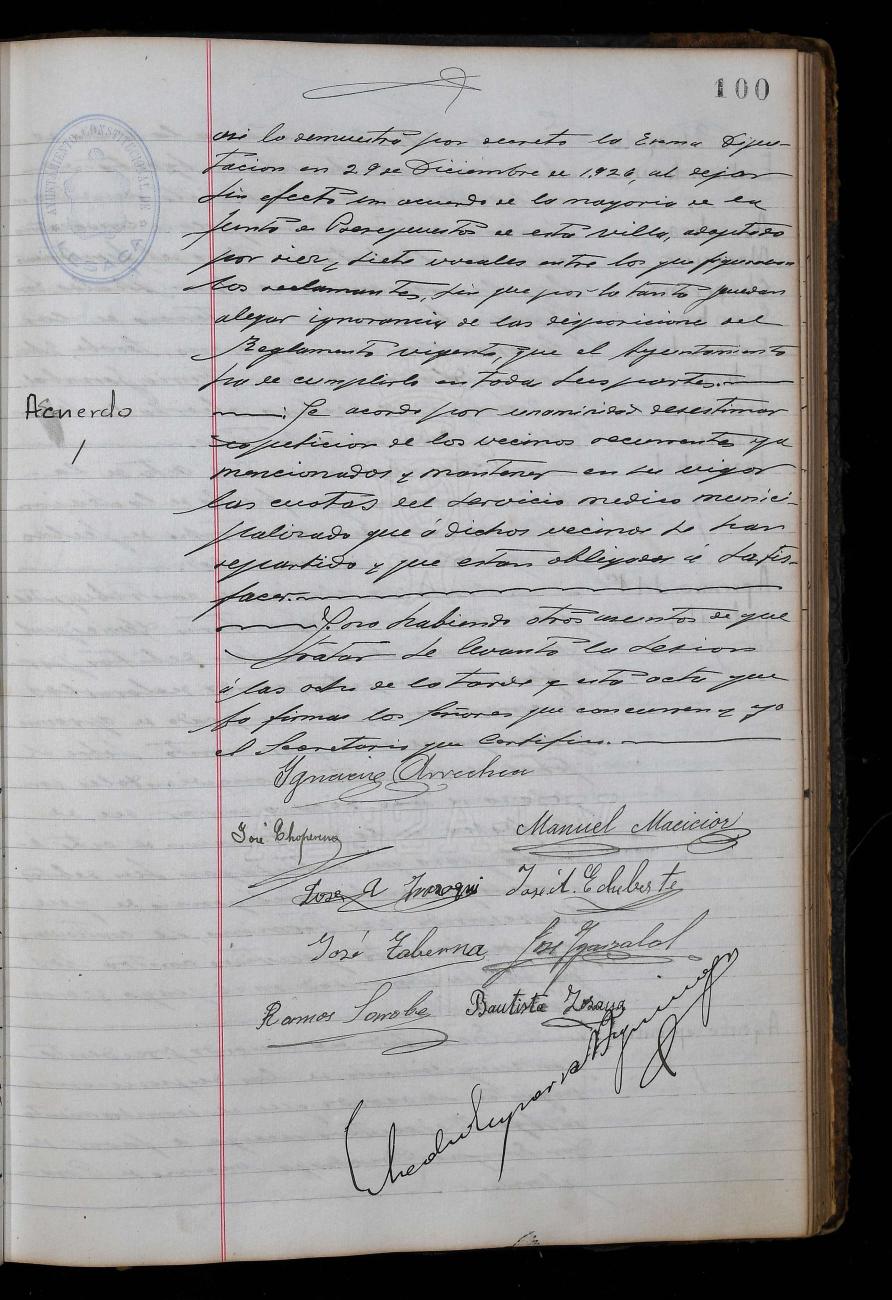 100
AYUNTAMIENTO CONSTITUCIONAL DE
asi lo demuestra por decreto la Exma Dipu-
tacion en 29 de Diciembre de 1.926, al dejar
sin efecto un acuerdo de la mayoria de la
Junta de Presupuestos de esta villa, adoptado
por diez y siete vocales entre los que figuraban
los reclamantes, sin que por lo tanto puedan
alegar ignorancia de las disposicione del
Reglamento vigente, que el Ayuntamiento
ha de cumplirlo en toda sus partes.
Acuerdo
Se acordo por unanimidad desestimar
peticion de los vecinos recurrentes ya
mencionados y mantener en su vigor
las cuotas del servicio medico munici-
palizado que á dichos vecinos se han
repartido y que estan obligados á satis-
facer.
Y no habiendo otros asuntos de que
tratar se levantó la sesion
á las ocho de la tarde y esta acta que
la firman los Señores que concurren y yo
el Secretario que Certifico.
Ignacio Arrechea
José Choperena
Manuel Macicior
Jose A José A. Echeberte
José Taberna José Ygarzabal
Ramos Sarrobe Bautista